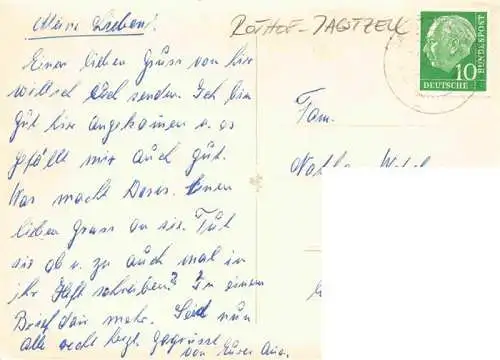 Meine Lieben!
Einen lieben Gruss von hier
will ich Euch senden. Ich bin
gut hier angekommen u. es
gefällt mir auch gut.
Was macht Doris. Einen
lieben Gruss an sie. Tut
sie ab u. zu auch mal in
ihr Heft schreiben? In einem
Brief dann mehr. Seid nun
alle recht herzl. gegrüsst
von Eurer
ROTHOF-JAGSTZELL
10
DEUTSCHE
BUNDESPOST
Fam.